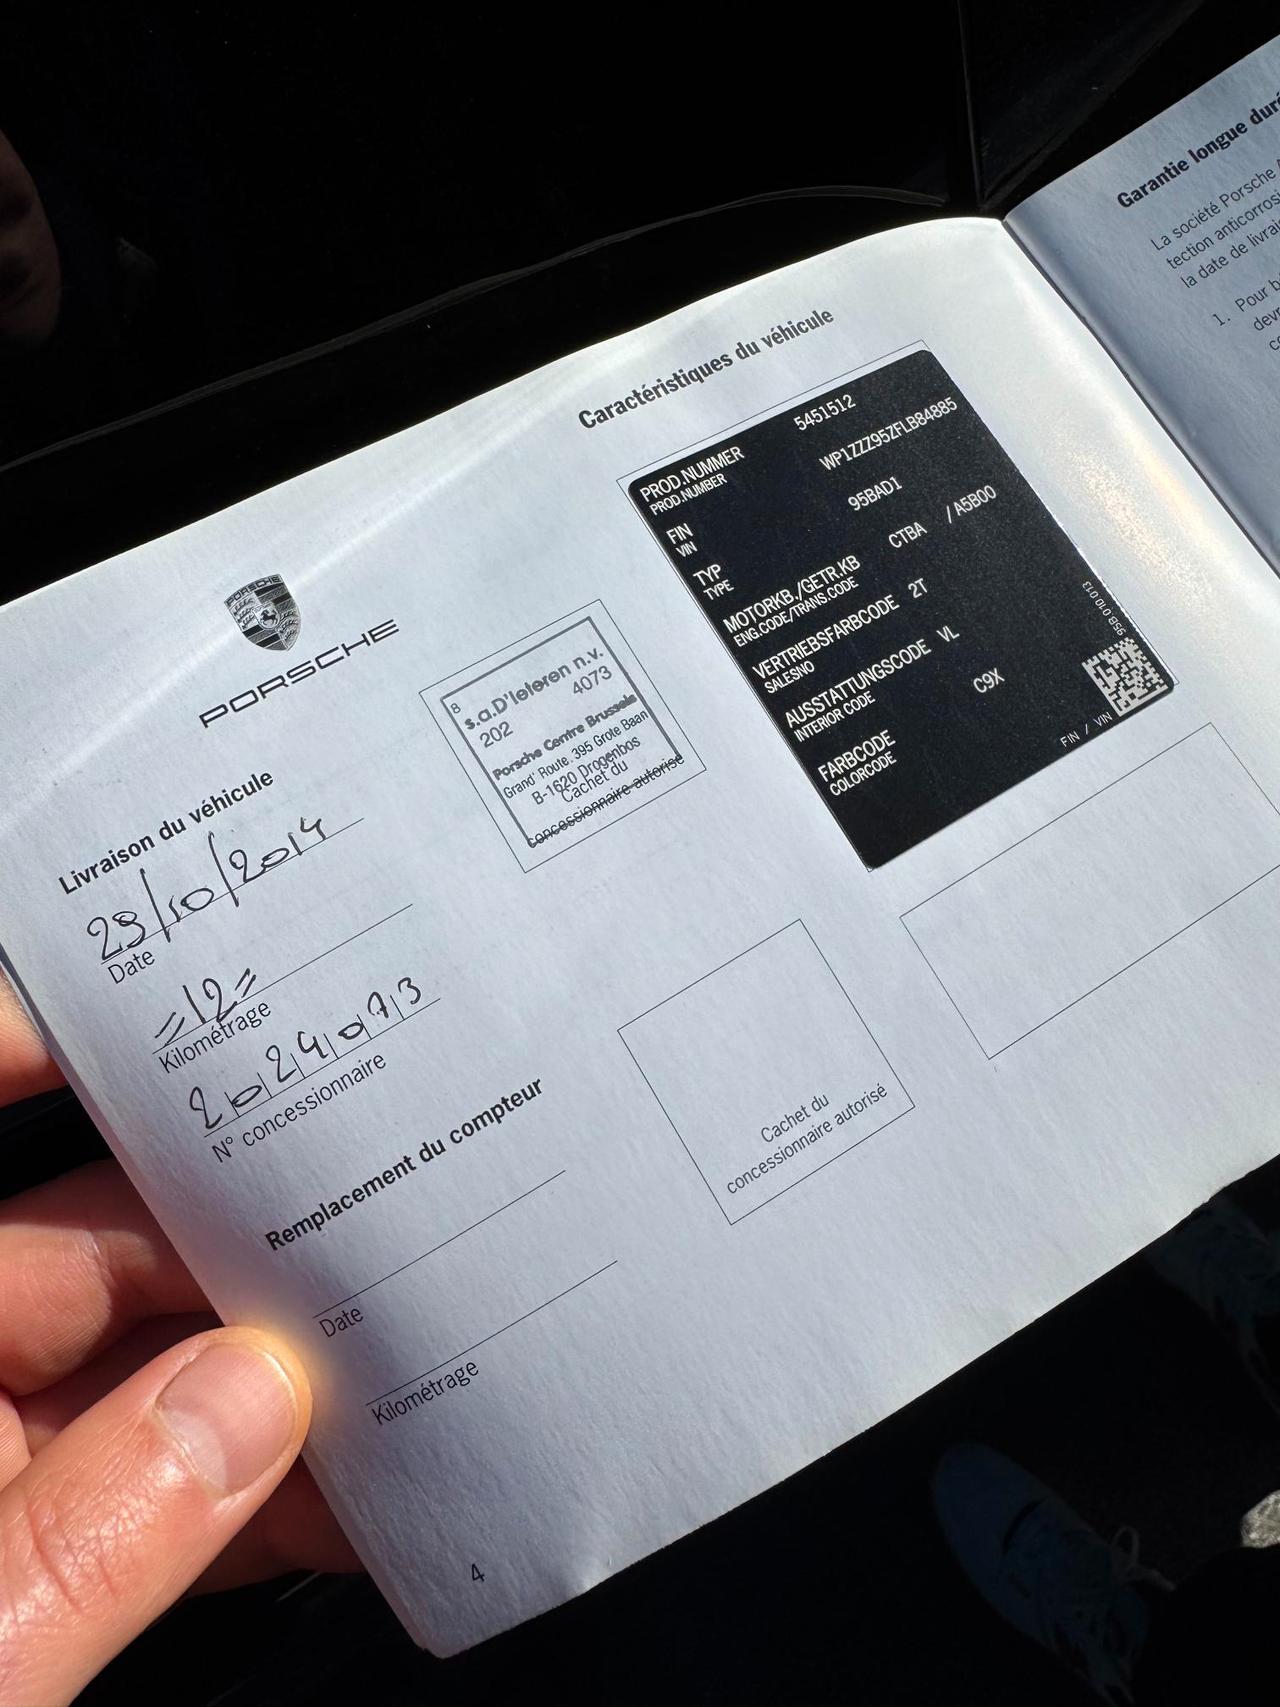 PORSCHE
PORSCHE
Livraison du véhicule
29/10/2014
Date
=12=
Kilométrage
2024073
N° concessionnaire
8
s.a.D'Ieteren n.v.
202 4073
Porsche Centre Brussels
Grand' Route. 395 Grote Baan
B-1620 Drogenbos
Cachet du
concessionnaire autorisé
Remplacement du compteur
Date
Kilométrage
Cachet du
concessionnaire autorisé
4
Caractéristiques du véhicule
PROD.NUMMER 5451512
PROD.NUMBER
FIN WP1ZZZ95ZFLB84885
VIN
TYP 95BAD1
TYPE
MOTORKB./GETR.KB CTBA / A5B00
ENG.CODE/TRANS.CODE
VERTRIEBSFARBCODE 2T
SALESNO
AUSSTATTUNGSCODE VL
INTERIOR CODE
FARBCODE C9X
COLORCODE
95B.010.013
FIN / VIN
Garantie longue
La société Porsche
tection
la date de
1. Pour